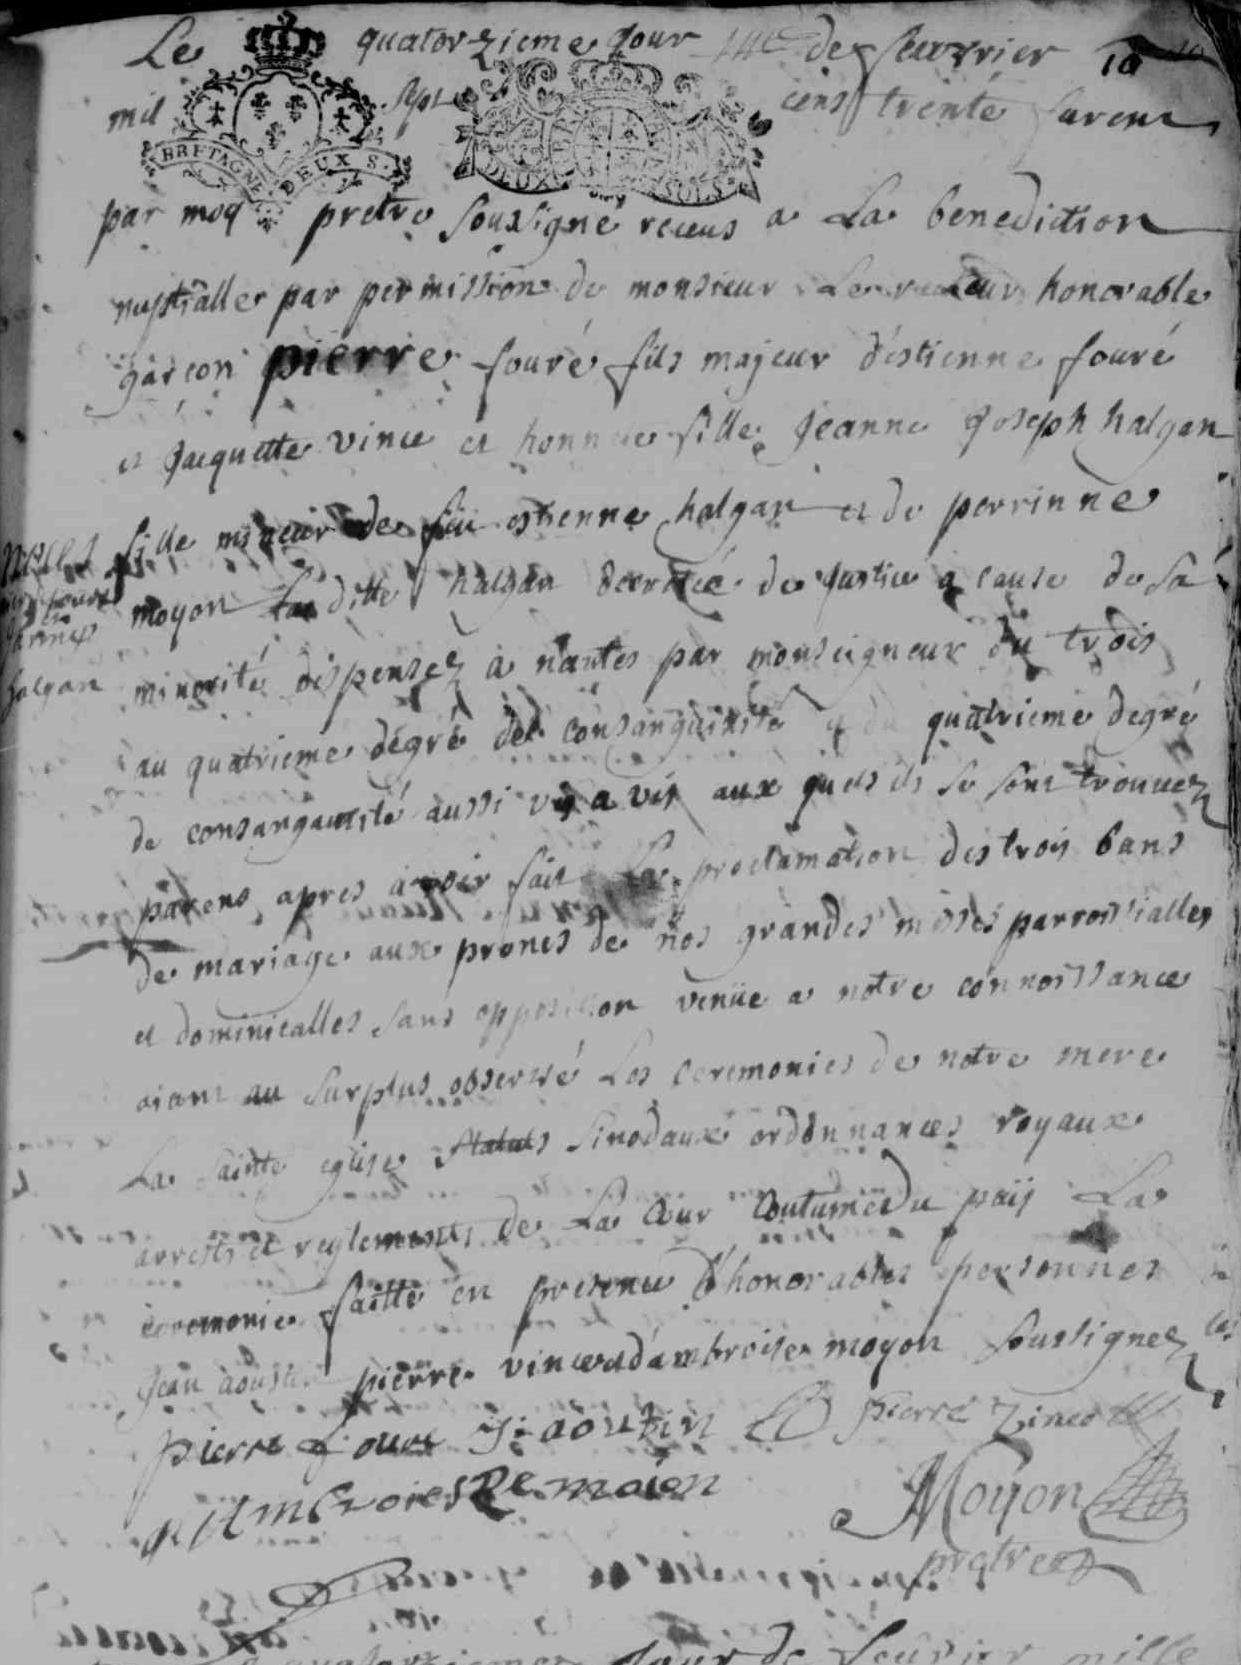 Le quatorzieme jour de feuvrier 10
mil sept cens trente furent
BRETAGNE DEUX S.
DEUX SOLS
par moy pretre soussigné receus a La benediction
nuptialle par permission de monsieur Le recteur honorable
garçon pierre fouré fils majeur d'estienne fouré
et Jacquette vince et honneste fille Jeanne Joseph halgan
fille mineur de feu estienne halgan et de perrinne
moyon La ditte halgan decretée de Justice a cause de sa
minorité dispensez a nantes par monseigneur du trois
au quatrieme dégré de consanguinité et du quatrieme degré
de consanguinité aussi vis a vis aux quels ils se sont trouuez
parens apres avoir fait La proclamation des trois bans
de mariage aux prones de nos grandes messes parroissialles
et dominicalles sans opposition venüe a notre connoissance
aiant au surplus observé Les ceremonies de notre mere
La sainte eglise statuts sinodaux ordonnances royaux
arrests et reglements de La Cour Coutume du païs La
ceremonie faitte en presence d'honorables personnes
Jean aoustin pierre vince et d'ambroise moyon soussignez
halgan
pierre foure J: aoutin pierre vince
Ambroise moien
Moyon
pretre
jour de feuvrier mille